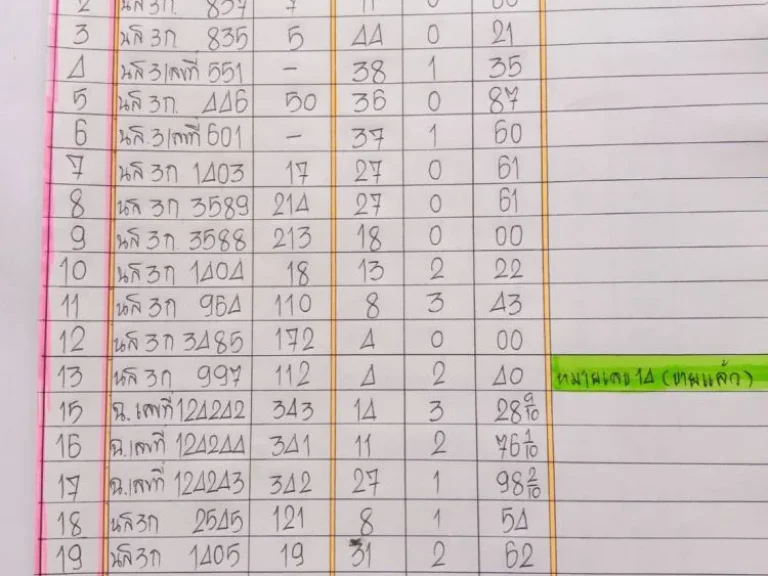 2 นส 3ก. 837 7 11 0 60
3 นส 3ก. 835 5 44 0 21
4 นส 3/เลขที่ 551 - 38 1 35
5 นส 3ก. 446 50 36 0 87
6 นส.3/เลขที่ 601 - 37 1 60
7 นส 3ก 1403 17 27 0 61
8 นส 3ก 3589 214 27 0 61
9 นส 3ก. 3588 213 18 0 00
10 นส 3ก 1404 18 13 2 22
11 นส 3ก 964 110 8 3 43
12 นส 3ก 3485 172 4 0 00
13 นส 3ก 997 112 4 2 40 หมายเลข 14 (ขายแล้ว)
15 ฉ. เลขที่ 124242 343 14 3 28 9/10
16 ฉ. เลขที่ 124244 341 11 2 76 1/10
17 ฉ. เลขที่ 124243 342 27 1 98 2/10
18 นส 3ก 2545 121 8 1 54
19 นส 3ก 1405 19 31 2 62